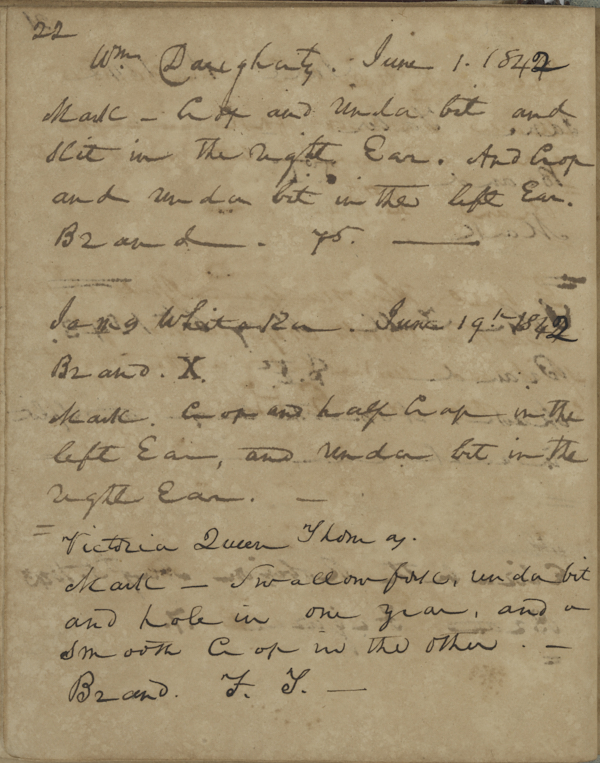 22
Wm Daugharty. June 1. 1842
Mark - Crop and under bit and
slit in the right Ear. And Crop
and under bit in the left Ear.
Brand - 75.
June 19th 1842
Brand. X.
Mark. Crop and half Crop in the
left Ear, and under bit in the
right Ear. -
Victoria Queen Thomas.
Mark - Swallowfork, under bit
and hole in one year, and a
Smooth Crop in the other. -
Brand. F. T. -